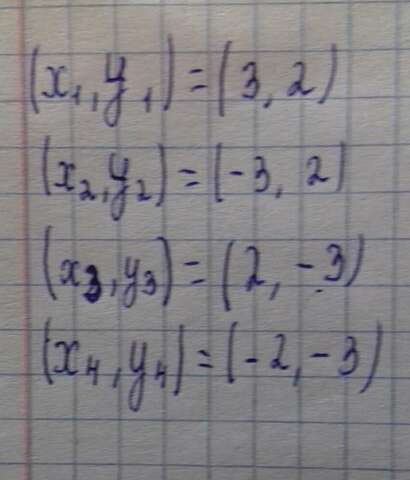 (x₁, y₁) = (3, 2)
(x₂, y₂) = (-3, 2)
(x₃, y₃) = (2, -3)
(x₄, y₄) = (-2, -3)